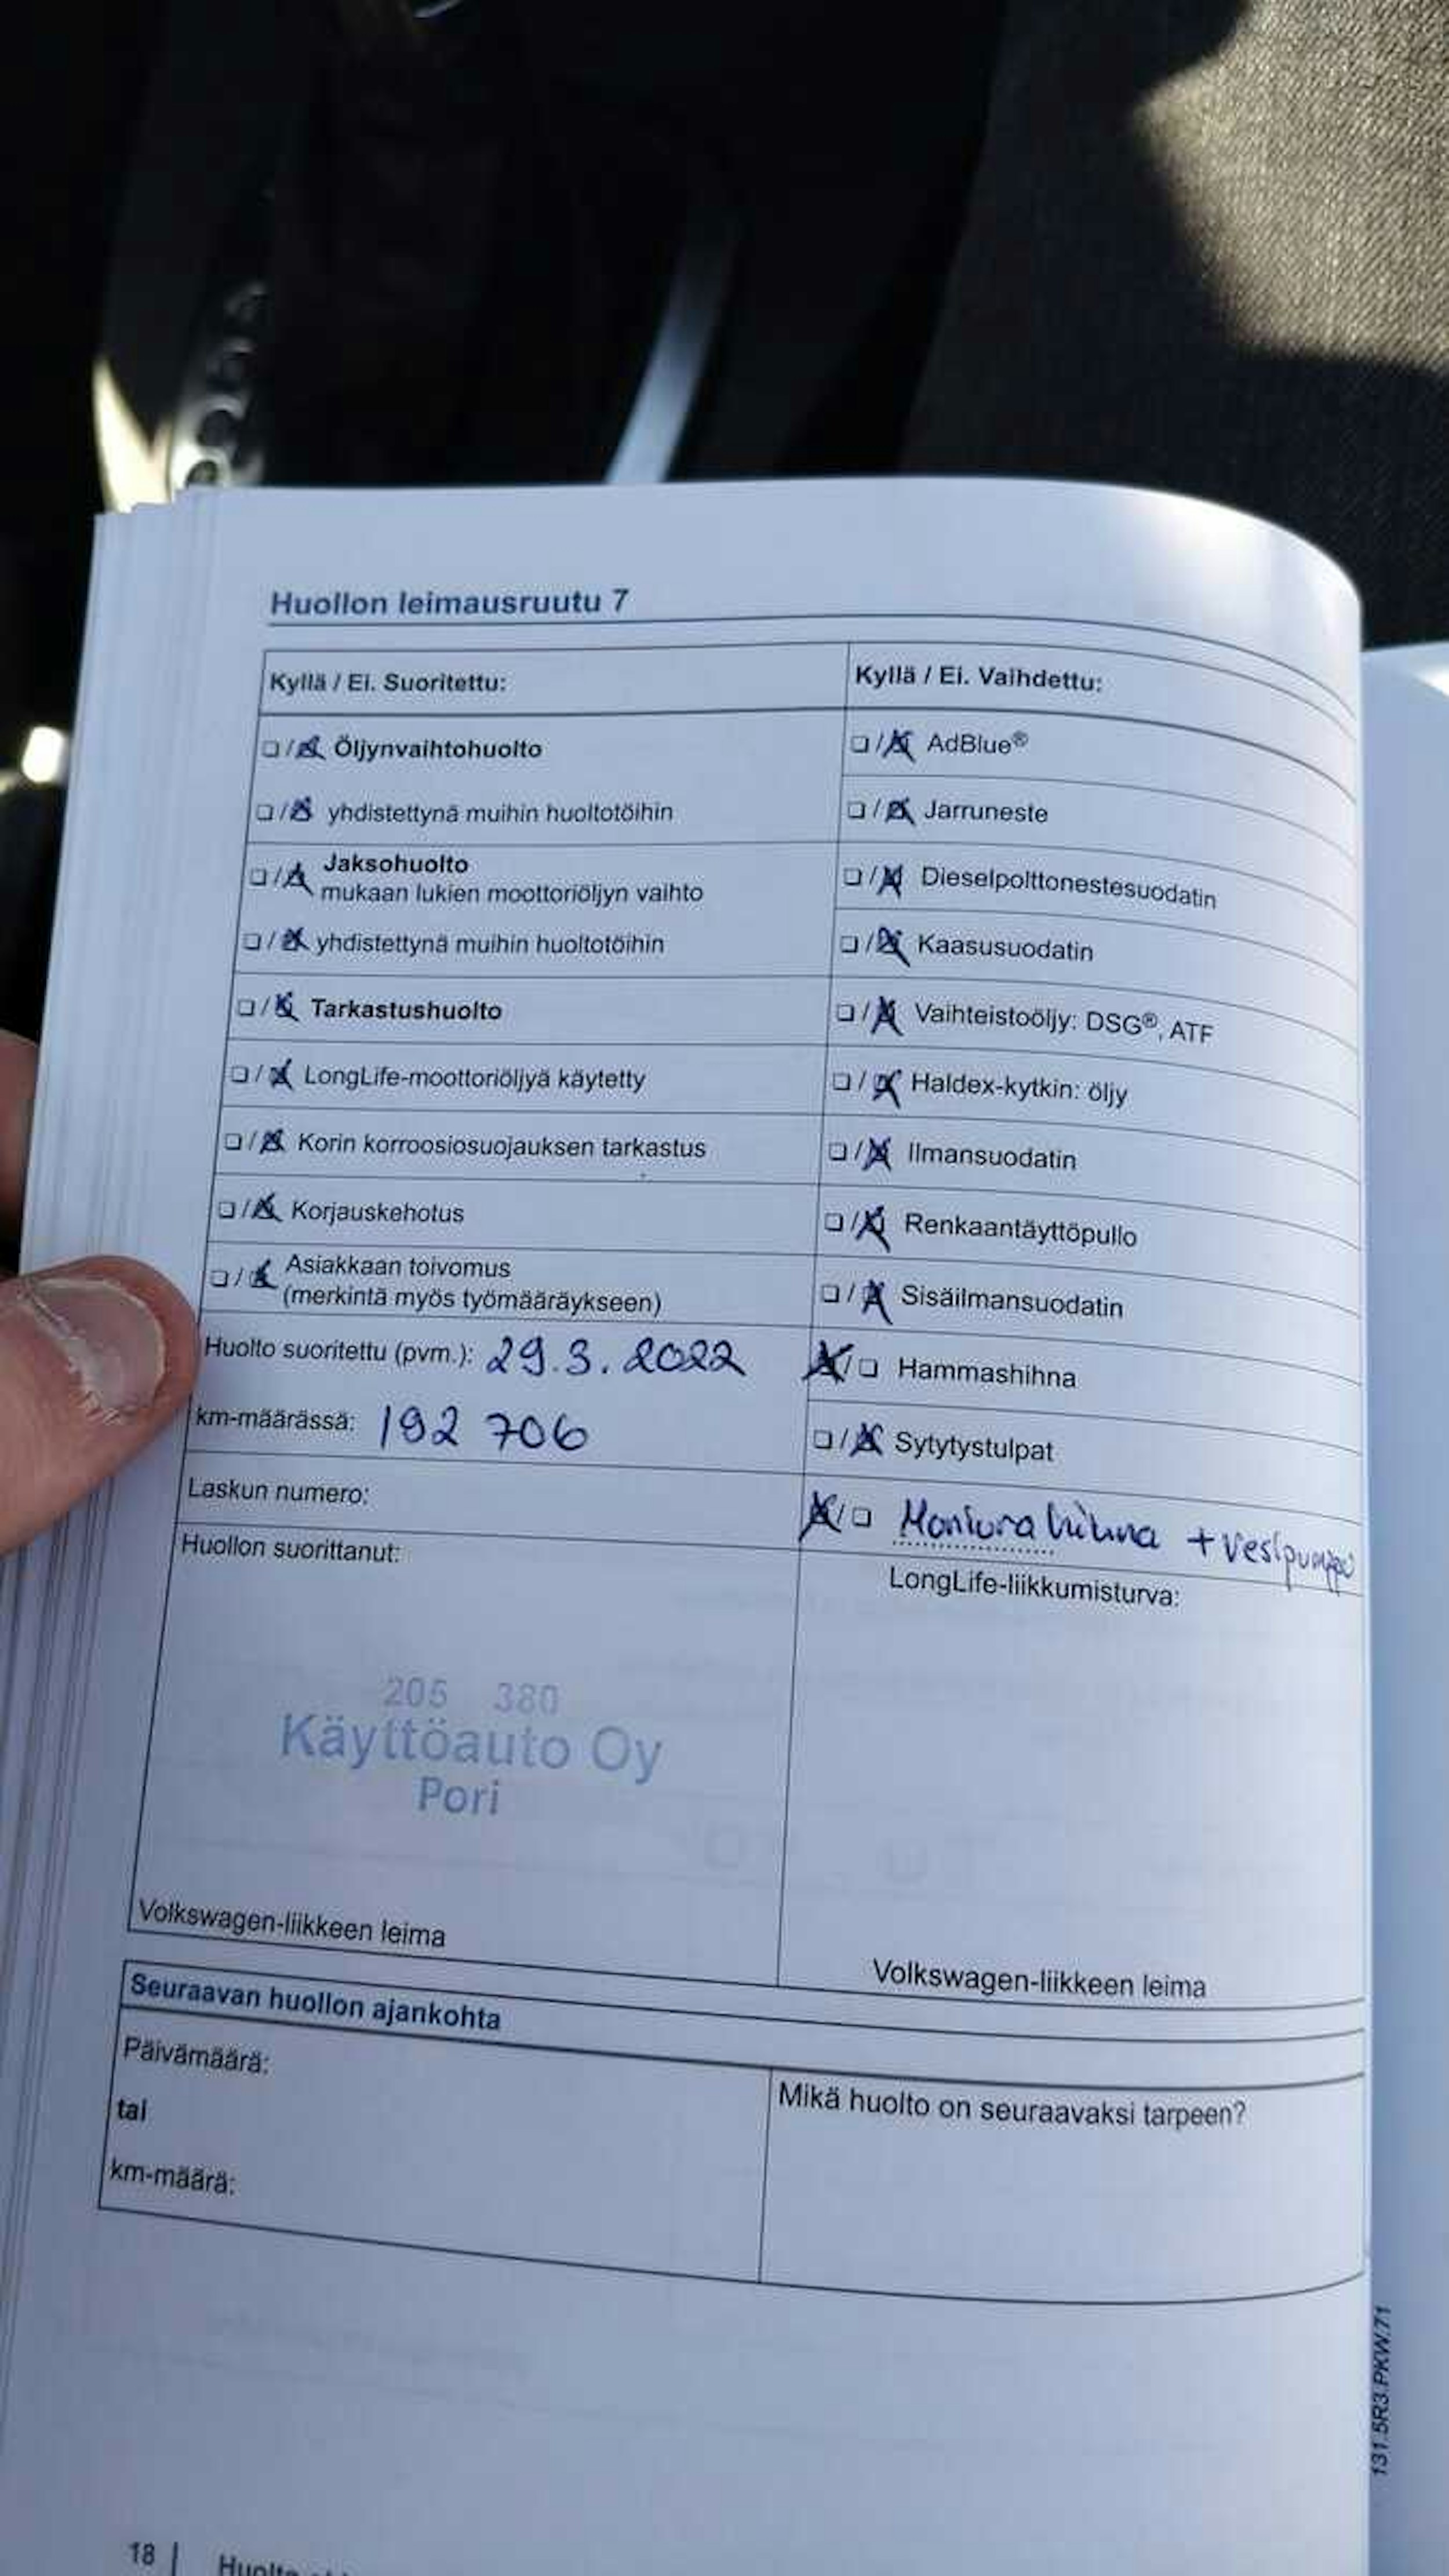 Huollon leimausruutu 7
Kyllä / Ei. Suoritettu:
Öljynvaihtohuolto
yhdistettynä muihin huoltotöihin
Jaksohuolto
mukaan lukien moottoriöljyn vaihto
yhdistettynä muihin huoltotöihin
Tarkastushuolto
LongLife-moottoriöljyä käytetty
Korin korroosiosuojauksen tarkastus
Korjauskehotus
Asiakkaan toivomus
(merkintä myös työmääräykseen)
Huolto suoritettu (pvm.): 29.3.2022
km-määrässä: 192 706
Laskun numero:
Huollon suorittanut:
205 380
Käyttöauto Oy
Pori
Volkswagen-liikkeen leima
Kyllä / Ei. Vaihdettu:
AdBlue®
Jarruneste
Dieselpolttonestesuodatin
Kaasusuodatin
Vaihteistoöljy: DSG®, ATF
Haldex-kytkin: öljy
Ilmansuodatin
Renkaantäyttöpullo
Sisäilmansuodatin
Hammashihna
Sytytystulpat
Moniurahihna + vesipumppu
LongLife-liikkumisturva:
Volkswagen-liikkeen leima
Seuraavan huollon ajankohta
Päivämäärä:
tai
km-määrä:
Mikä huolto on seuraavaksi tarpeen?
131.5R3.PKW.71
18